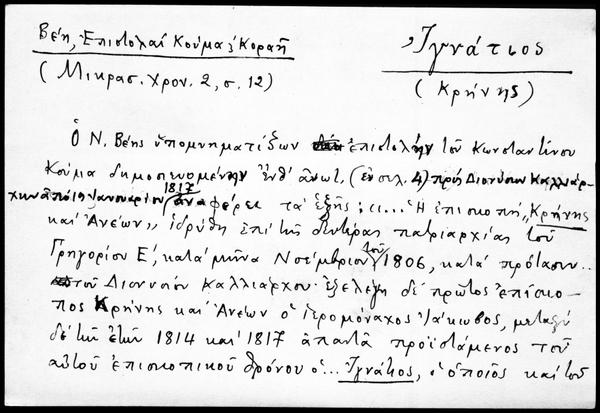 Βέη, Ἐπιστολαί Κούμα & Κοραῆ
(Μικρασ. Χρον. 2, σ. 12)
Ἰγνάτιος
(Κρήνης)
Ὁ Ν. Βέης ὑπομνηματίζων ἐπιστολήν τοῦ Κωνσταντίνου
Κούμα δημοσιευομένην ἔνθ' ἀνωτ. (ἐν σελ. 4) πρός Διονύσιον Καλλιάρ-
χην ἀπό 19 Ἰανουαρίου 1817 ἀναφέρει τά ἑξῆς: «... Ἡ ἐπισκοπή „Κρήνης
καί Ἀνέων„ ἱδρύθη ἐπί τῆς δευτέρας πατριαρχίας τοῦ
Γρηγορίου Ε', κατά μῆνα Νοέμβριον τοῦ 1806, κατά πρότασιν..
τοῦ Διονυσίου Καλλιάρχου· ἐξελέγη δέ πρῶτος ἐπίσκο-
πος Κρήνης καί Ἀνέων ὁ ἱερομόναχος Ἰάκωβος, μεταξύ
δέ τῶν ἐτῶν 1814 καί 1817 ἀπαντᾶ προϊστάμενος τοῦ
αὐτοῦ ἐπισκοπικοῦ θρόνου ὁ... Ἰγνάτιος, ὁ ὁποῖος καί τοῦ